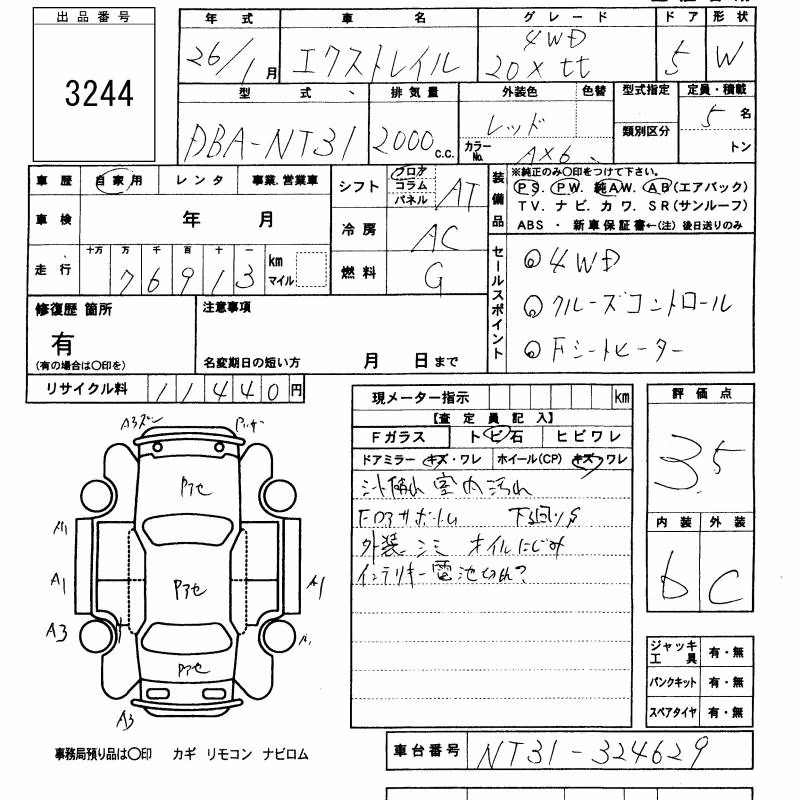 出品番号
3244
年式 車名 グレード ドア 形状
26/1月 エクストレイル 4WD 20X tt 5 W
型式 排気量 外装色 色替 型式指定 定員・積載
DBA-NT31 2000c.c. レッド 類別区分 5名
カラーNo. AX6 トン
車歴 自家用 レンタ 事業.営業車
車検 年 月
走行 十万 万 千 百 十 一
76913 km マイル
シフト フロア コラム パネル AT
冷房 AC
燃料 G
装備品
※純正のみ○印をつけて下さい。
PS. PW. 純AW. AB(エアバック)
TV. ナビ. カワ. SR(サンルーフ)
ABS ・ 新車保証書←(注) 後日送りのみ
セールスポイント
◎4WD
◎クルーズコントロール
◎Fシートヒーター
修復歴 箇所
有
(有の場合は○印を)
注意事項
名変期日の短い方 月 日まで
リサイクル料 11440円
現メーター指示 km
【査定員記入】
Fガラス トビ石 ヒビワレ
ドアミラー キズ・ワレ ホイール(CP) キズ ワレ
室内汚れ
下回りS
外装シミ オイルにじみ
インテリキー電池切れ?
評価点
3.5
内装 外装
b C
ジャッキ工具 有・無
パンクキット 有・無
スペアタイヤ 有・無
A3
Pアセ
A1
Pアセ
A1
A3
Pアセ
A3
事務局預り品は○印 カギ リモコン ナビロム
車台番号 NT31-324629